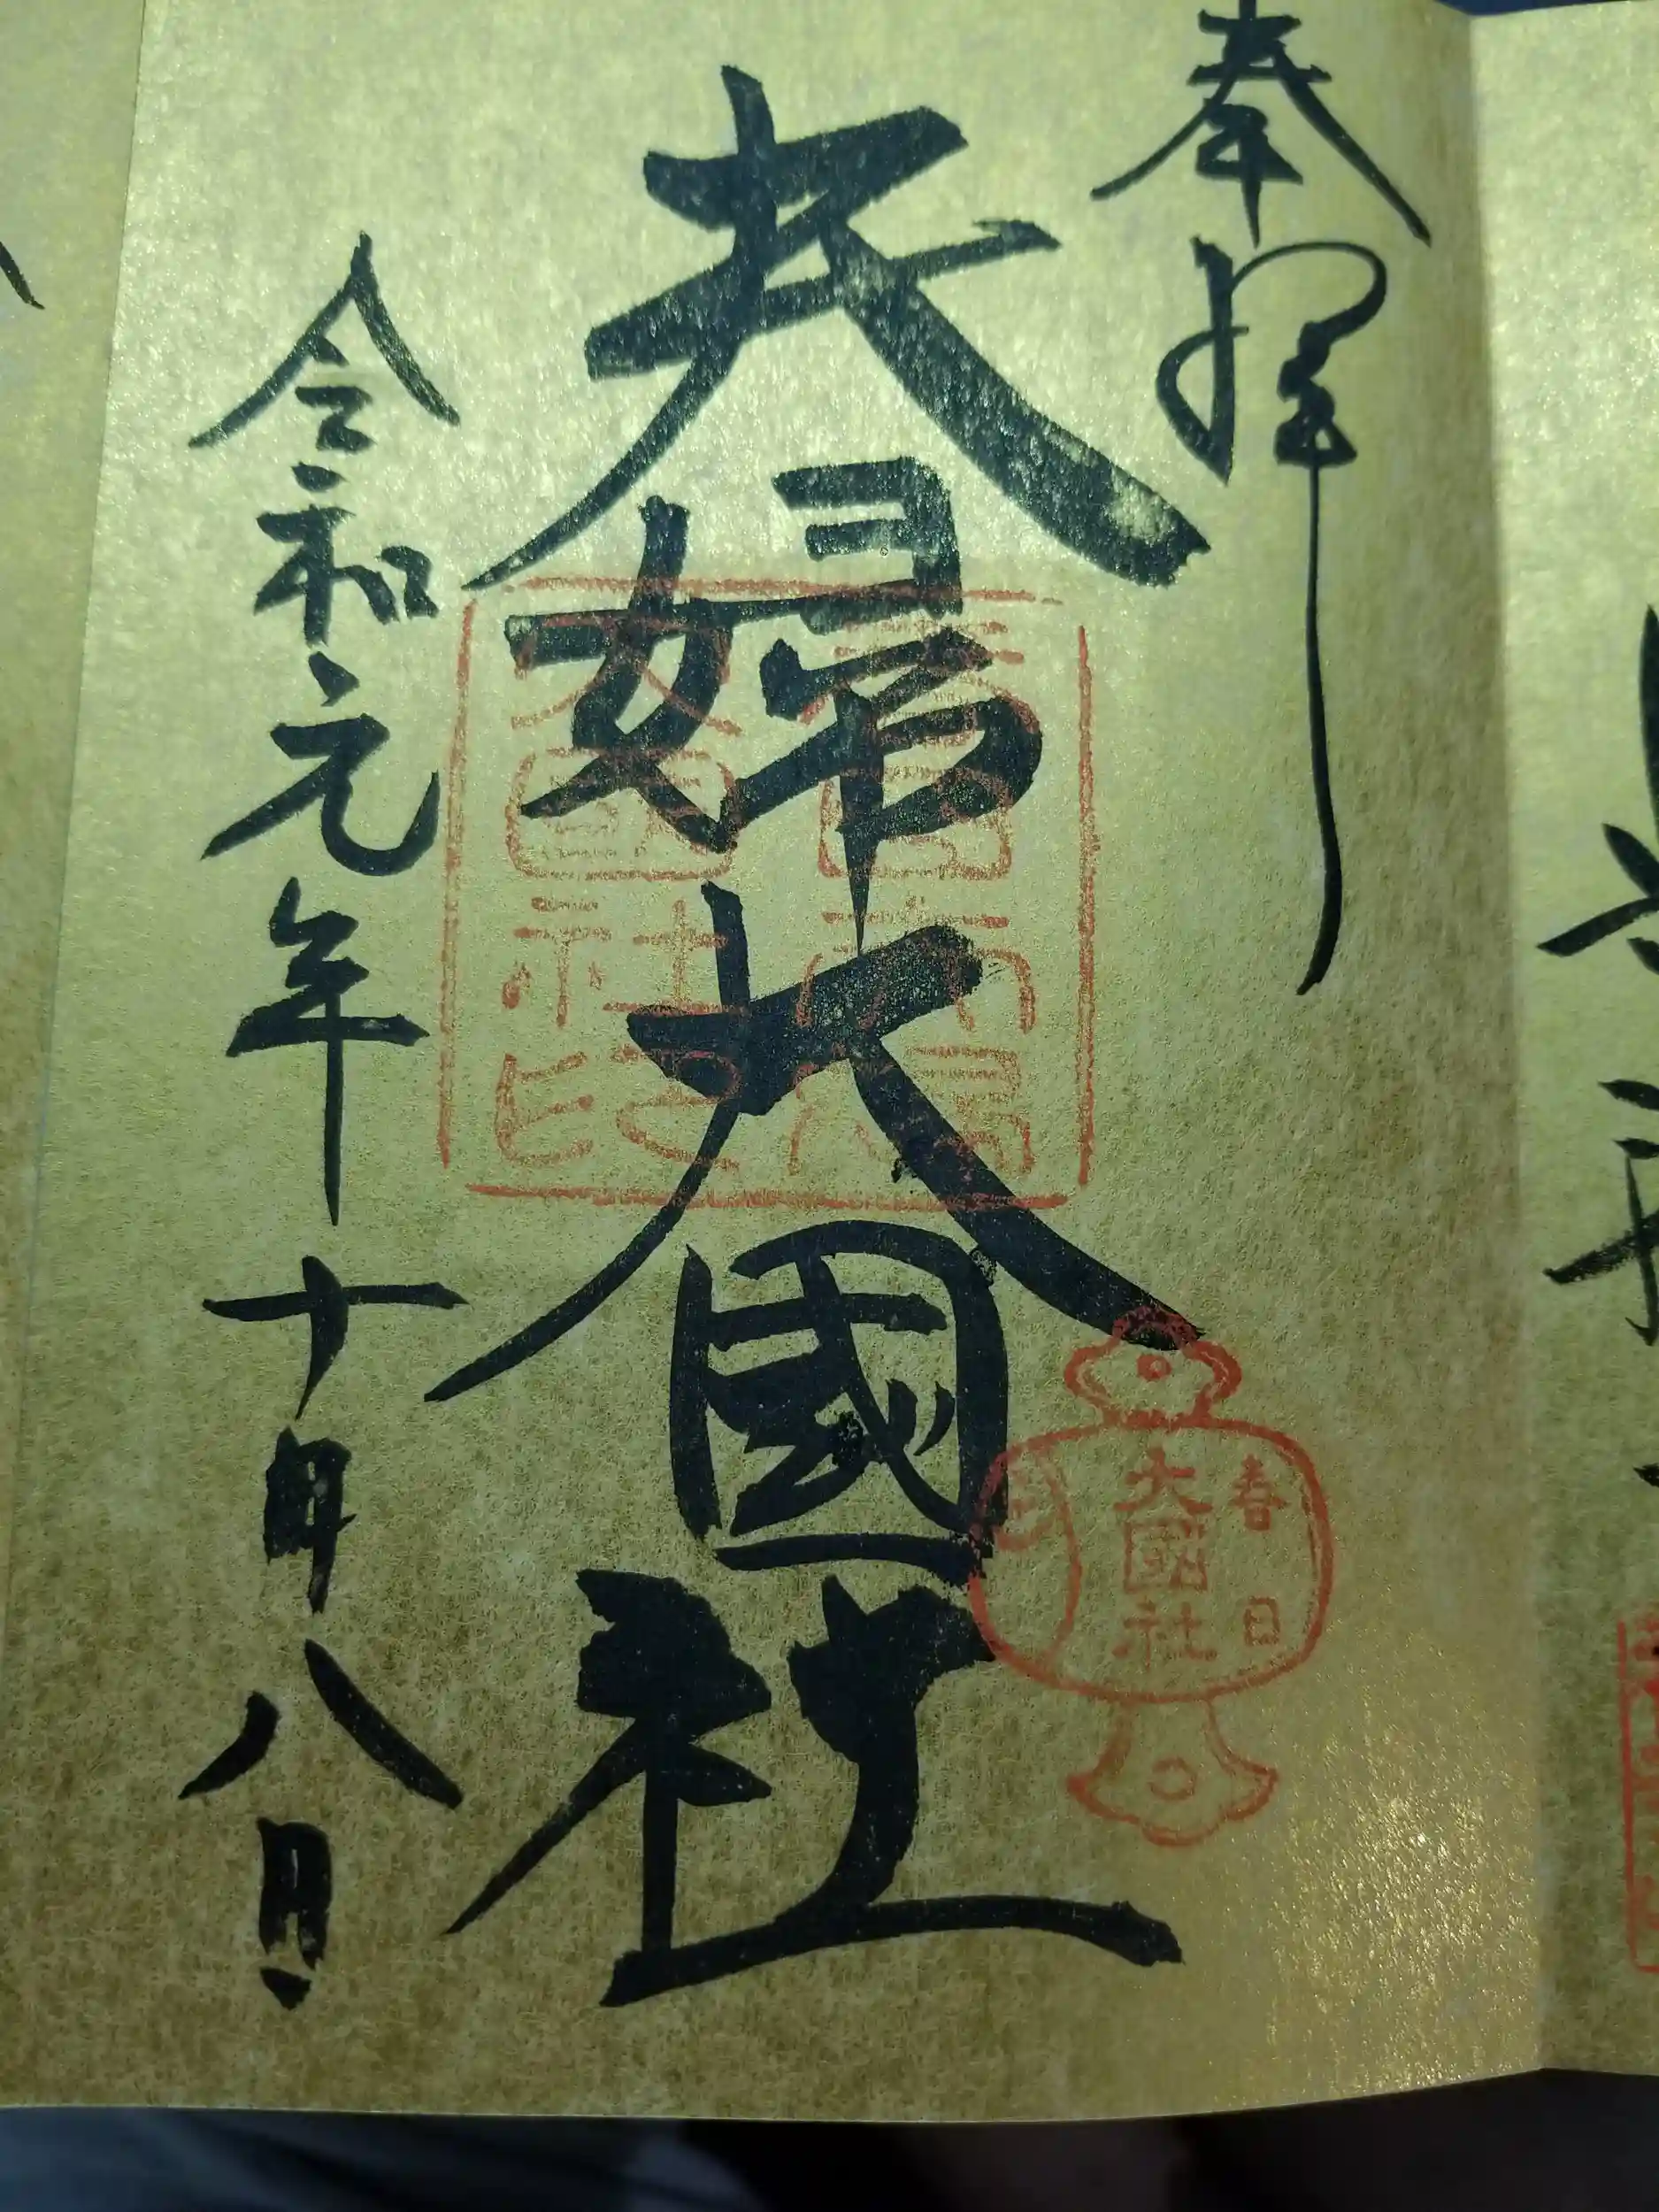 奉拝
夫婦大國社
春日
大國社
令和元年十月八日